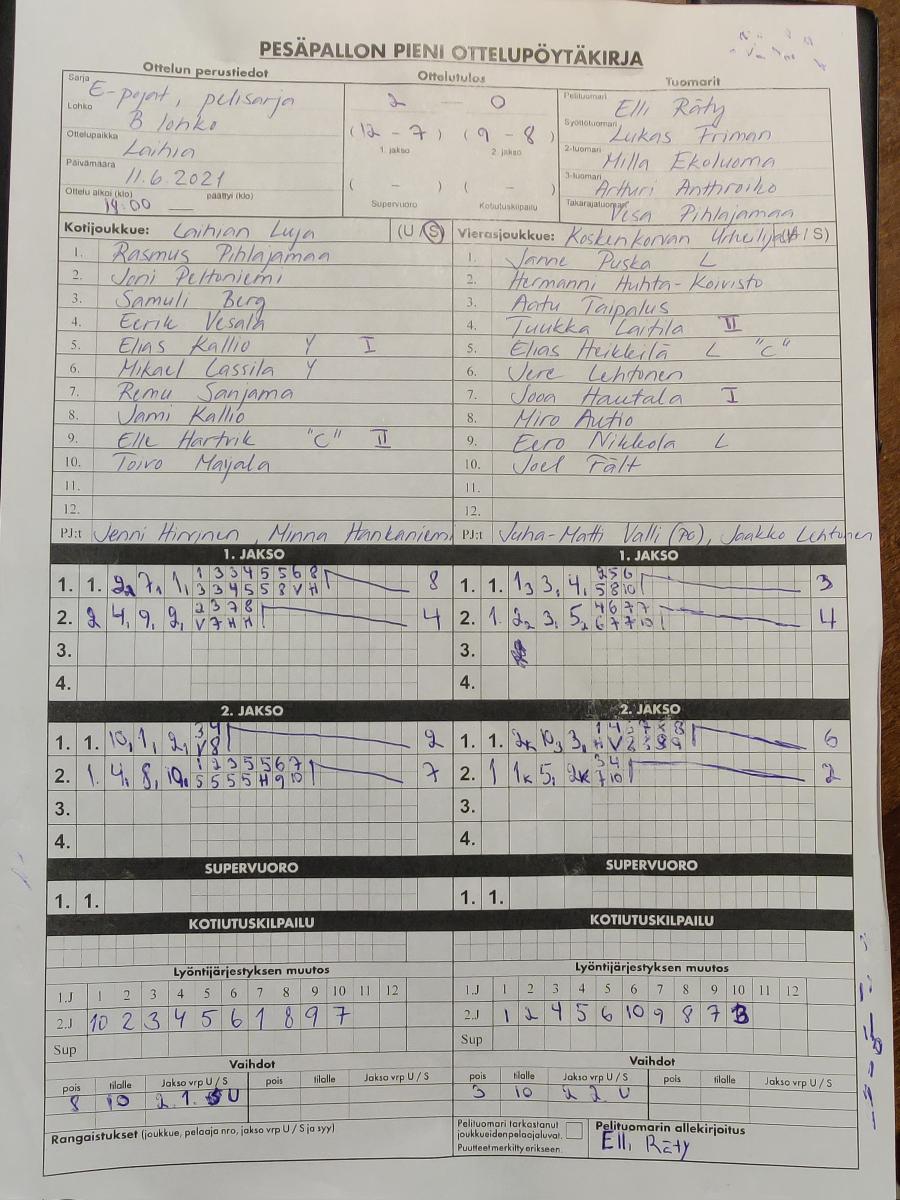 PESÄPALLON PIENI OTTELUPÖYTÄKIRJA
Ottelun perustiedot
Sarja E-pojat, pelisarja
Lohko B lohko
Ottelupaikka Laihia
Päivämäärä 11.6.2021
Ottelu alkoi (klo) 18:00 päättyi (klo)
Ottelutulos
2 - 0
(12 - 7) (9 - 8)
1. jakso 2. jakso
( - ) ( - )
Supervuoro Kotiutuskilpailu
Tuomarit
Pelituomari Elli Räty
Syöttötuomari Lukas Friman
2-tuomari Milla Ekoluoma
3-tuomari Artturi Anthroiko
Takarajatuomari Vesa Pihlajamaa
Kotijoukkue: Laihian Luja (U / S)
1. Rasmus Pihlajamaa
2. Joni Peltoniemi
3. Samuli Berg
4. Eerik Vesala
5. Elias Kallio Y I
6. Mikael Cassila Y
7. Remu Sanjama
8. Jami Kallio
9. Elle Hartvik "C" II
10. Toivo Mayala
11.
12.
PJ:t Jenni Hirvinen, Minna Hankaniemi
Vierasjoukkue: Koskenkorvan Urheilijat (U / S)
1. Janne Puska L
2. Hermanni Huhta-Koivisto
3. Aatu Taipalus
4. Tuukka Laitila II
5. Elias Heikkilä L "C"
6. Jere Lehtonen
7. Jooa Hautala I
8. Miro Autio
9. Eero Nikkola L
10. Joel Fält
11.
12.
PJ:t Juha-Matti Valli (PC), Jaakko Lehtonen
1. JAKSO
1. 1. 2, 7, 1, 1 3 3 4 5 5 6 8 8
3 3 4 5 5 8 V H
2. 2 4, 9, 2, 2 3 7 8 4
V 7 H H
3.
4.
1. JAKSO
1. 1. 1, 3, 4, 2 5 6 3
5 8 10
2. 1. 2, 3, 5, 4 6 7 7 4
6 7 7 10
3.
4.
2. JAKSO
1. 1. 10, 1, 2, 3 4 2
V 8
2. 1. 4, 8, 10, 1 2 3 5 5 6 7 7
5 5 5 5 H 9 10
3.
4.
2. JAKSO
1. 1. 2k 10, 3, 6
2. 1 1k 5, 2k 3 4 2
7 10
3.
4.
SUPERVUORO
1. 1.
SUPERVUORO
1. 1.
KOTIUTUSKILPAILU
KOTIUTUSKILPAILU
Lyöntijärjestyksen muutos
1.J 1 2 3 4 5 6 7 8 9 10 11 12
2.J 10 2 3 4 5 6 1 8 9 7
Sup
Lyöntijärjestyksen muutos
1.J 1 2 3 4 5 6 7 8 9 10 11 12
2.J 1 2 4 5 6 10 9 8 7 3
Sup
Vaihdot
pois tilalle Jakso vrp U / S pois tilalle Jakso vrp U / S
8 10 2. 1. U
Vaihdot
pois tilalle Jakso vrp U / S pois tilalle Jakso vrp U / S
3 10 2 2 U
Rangaistukset (joukkue, pelaaja nro, jakso vrp U / S ja syy)
Pelituomari tarkastanut
joukkueiden pelaajaluvat.
Puutteet merkitty erikseen.
Pelituomarin allekirjoitus
Elli Räty